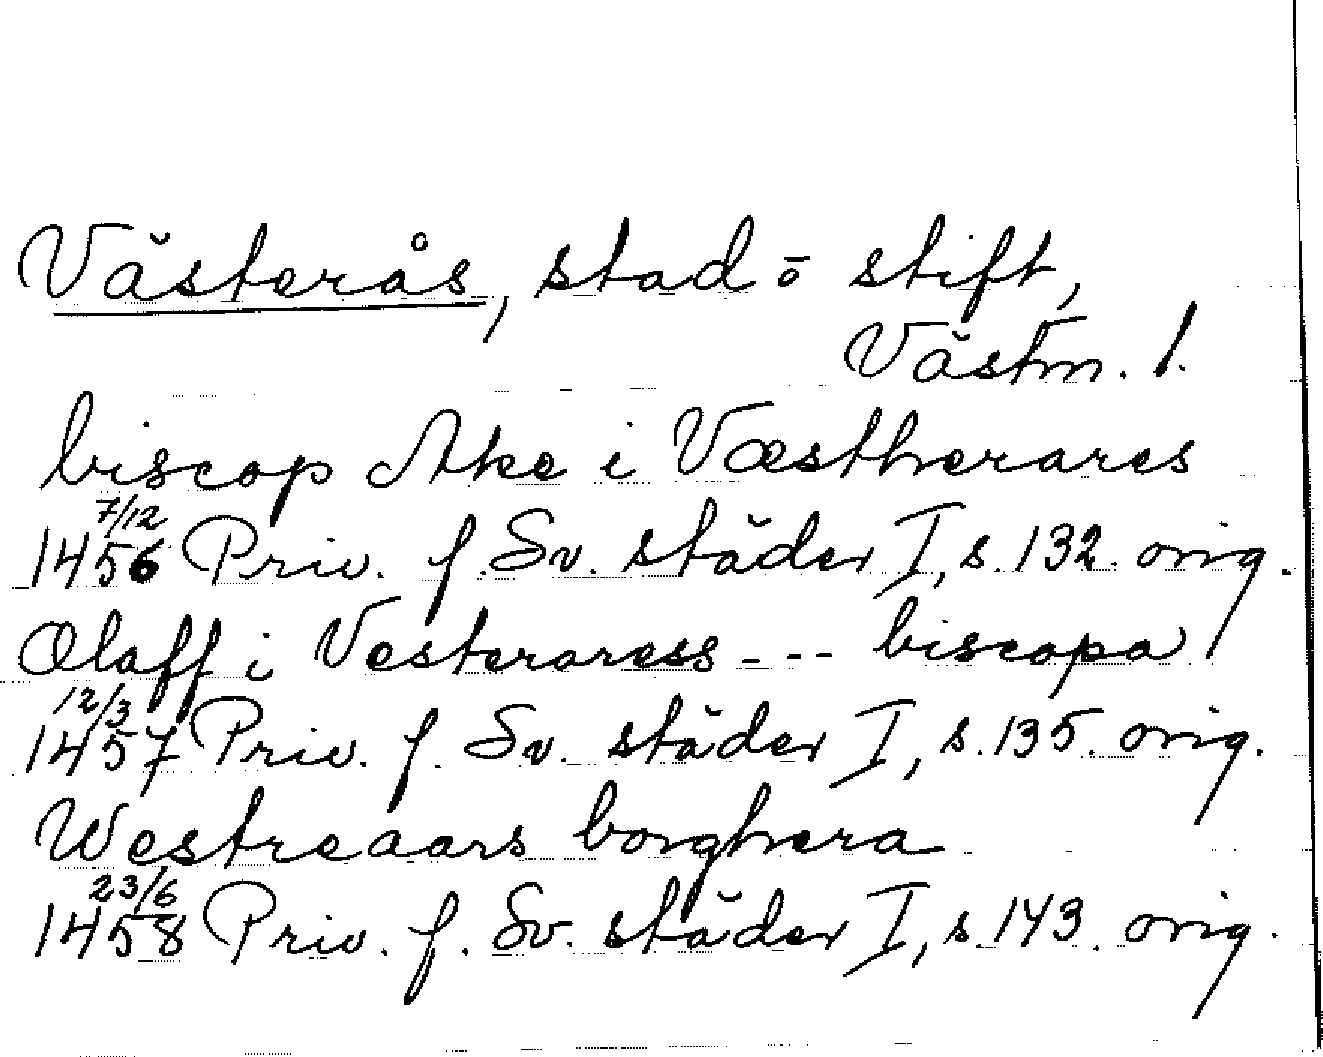 Västerås, stad ō stift,
Västm. l.
biscop Ake i Væstherares
7/12
1456 Priv. f. Sv. städer I, s. 132. orig.
Olaff i Vesteraress - - - biscopa
12/3
1457 Priv. f. Sv. städer I, s. 135. orig.
Westreaars borghera
23/6
1458 Priv. f. Sv. städer I, s. 143. orig.